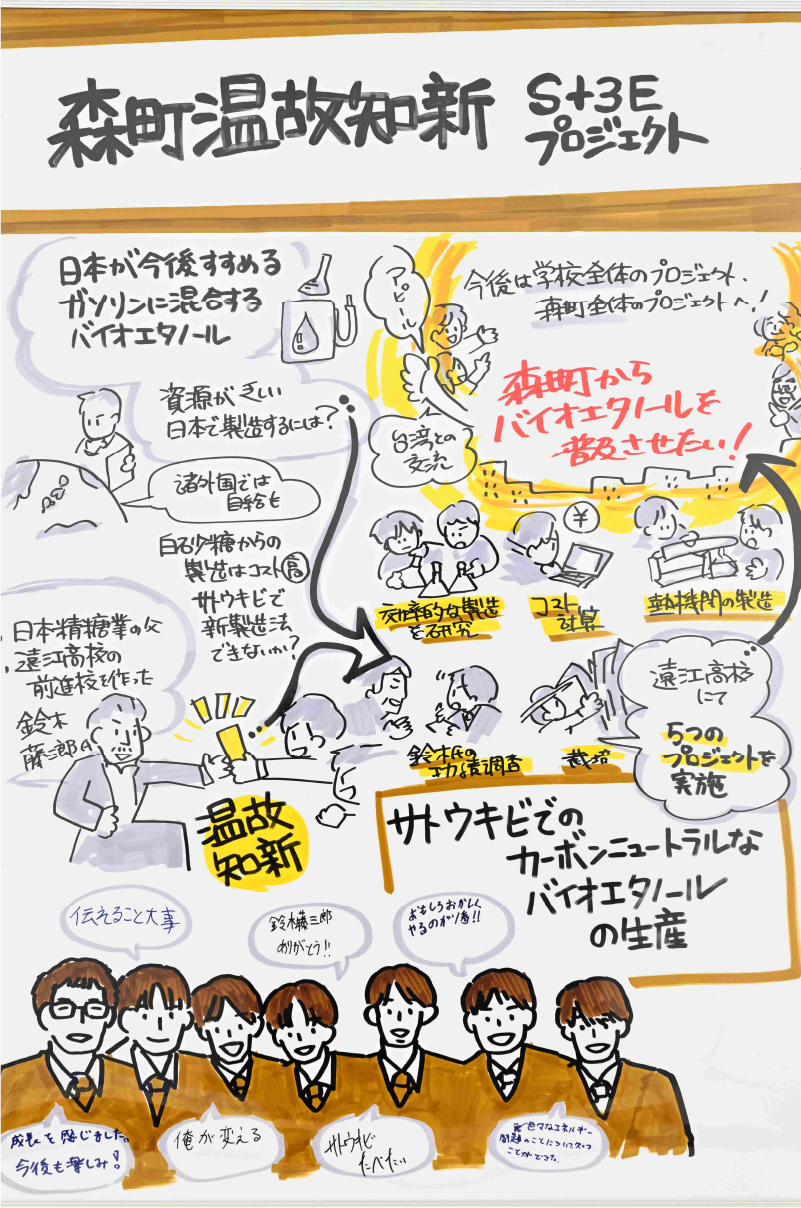 森町温故知新
S+3E
プロジェクト
日本が今後すすめる
ガソリンに混合する
バイオエタノール
資源が乏しい
日本で製造するには?
諸外国では
自給も
白砂糖からの
製造はコスト高
サトウキビで
新製造法
できないか?
日本精糖業の父
遠江高校の
前進校を作った
鈴木
藤三郎
温故
知新
アピール
台湾との
交流
今後は学校全体のプロジェクト、
森町全体のプロジェクトへ!
森町から
バイオエタノールを
普及させたい!
効率的な製造
を研究
コスト
計算
¥
熱機関の製造
鈴木氏の
功績調査
栽培
遠江高校
にて
5つの
プロジェクトを
実施
サトウキビでの
カーボンニュートラルな
バイオエタノール
の生産
伝えること大事
鈴木藤三郎
ありがとう!!
おもしろおかしく
やるのが1番!!
成長を感じました。
今後も楽しみ!
俺が変える
サトウキビ
たべたい
色々なエネルギー
問題のことについて知る
ことができた。